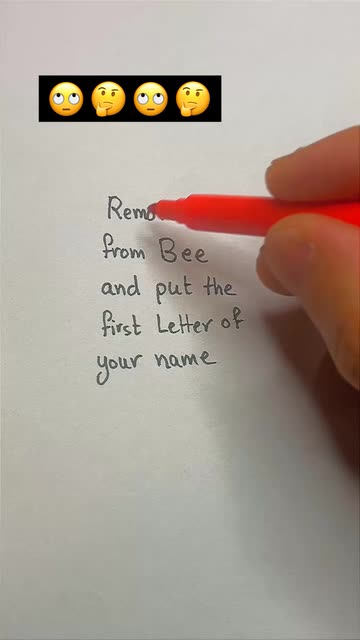 from Bee
and put the
first Letter of
your name